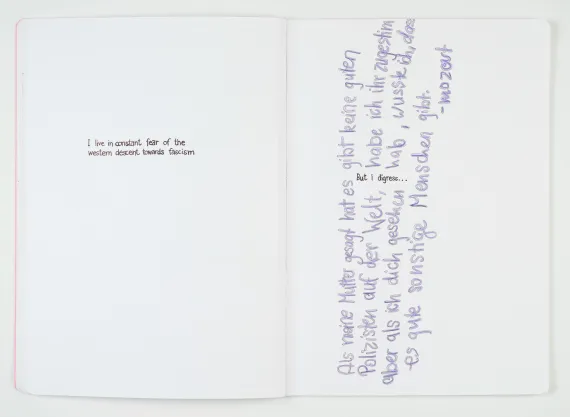 I live in constant fear of the
western descent towards fascism
But I digress...
Als meine Mutter gesagt hat es gibt keine guten
Polizisten auf der Welt, habe ich ihr zugestim
aber als ich dich gesehen hab, wusste ich, das
es gute sonstige Menschen gibt.
-mozart